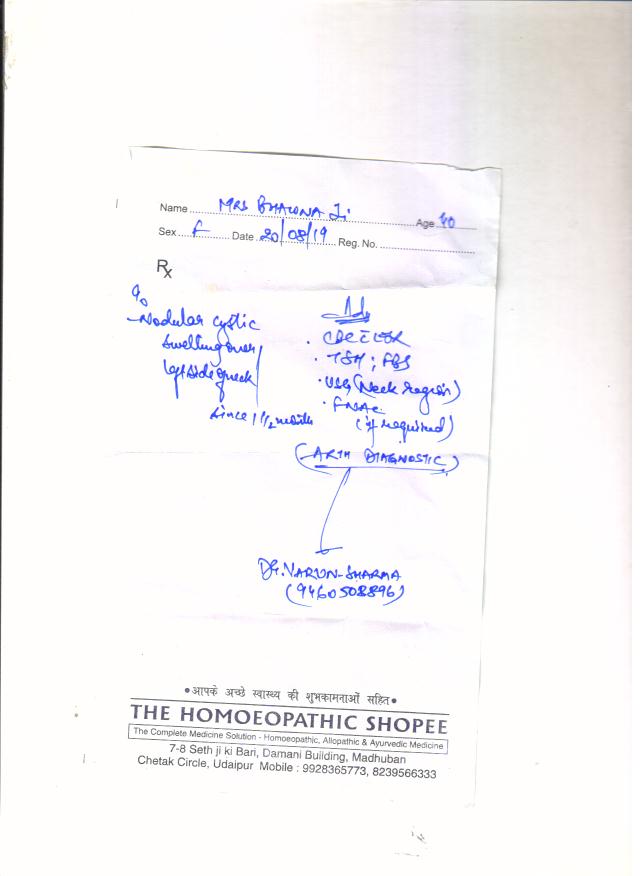 Name MRS BHAWNA Ji Age 40
Sex F Date 20/08/19 Reg. No.
Rx
c/o
- Nodular cystic
swelling over
left side of neck
since 1 1/2 month
Adv
• CBC & ESR
• TSH ; FBS
• USG (Neck region)
• FNAC
(if required)
(ARTH DIAGNOSTIC)
Dr. VARUN SHARMA
(9460508896)
• आपके अच्छे स्वास्थ्य की शुभकामनाओं सहित •
THE HOMOEOPATHIC SHOPEE
The Complete Medicine Solution - Homoeopathic, Allopathic & Ayurvedic Medicine
7-8 Seth ji ki Bari, Damani Building, Madhuban
Chetak Circle, Udaipur Mobile : 9928365773, 8239566333